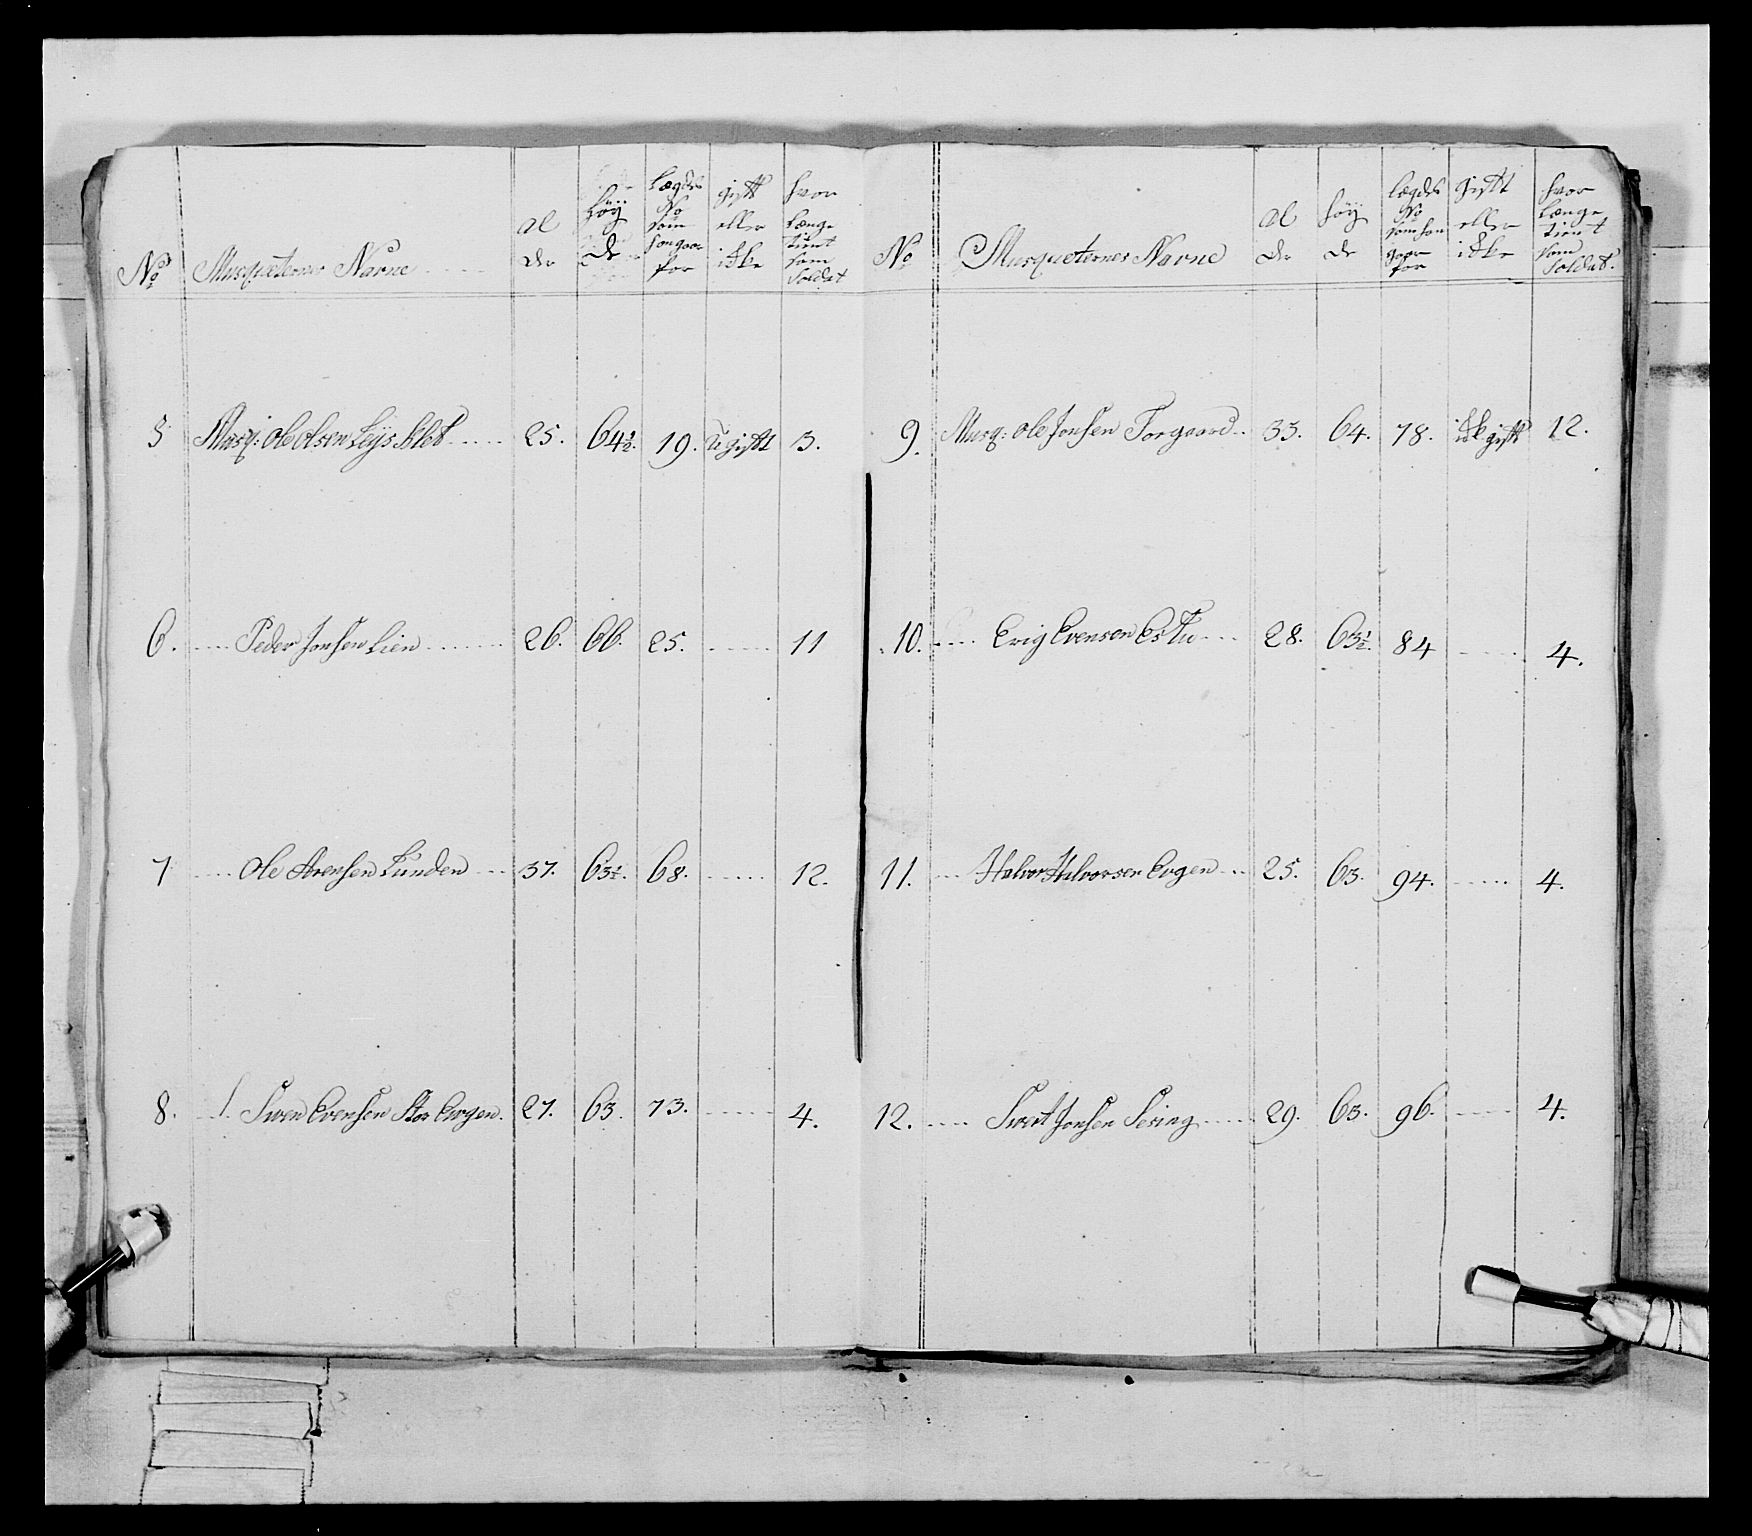 No Musqueternes Navne Al der Höy de Lægds No som han gaar for gift eller ikke hvor længe tient som Soldat
5 Musq: Ole Olsen 25. 64½. 19. Ugift 3.
6. Peder Jonsen Lien 26. 66. 25. 11
7 Ole Arensen Lunden 37. 63½. 68. 12.
8. Sven Evensen Stor Evgen. 27. 63. 73. 4.
No Musqueternes Navne Al der höy de Lægds No som han gaar for gift eller ikke hvor længe tient som Soldat.
9. Musq: Ole Jonsen Torgaard 33. 64. 78. ikke gift 12.
10. Erig Evensen 28. 63½. 84 4.
11. Halvor Halvorsen Evgen 25. 63. 94. 4.
12. Jonsen 29. 63. 96. 4.